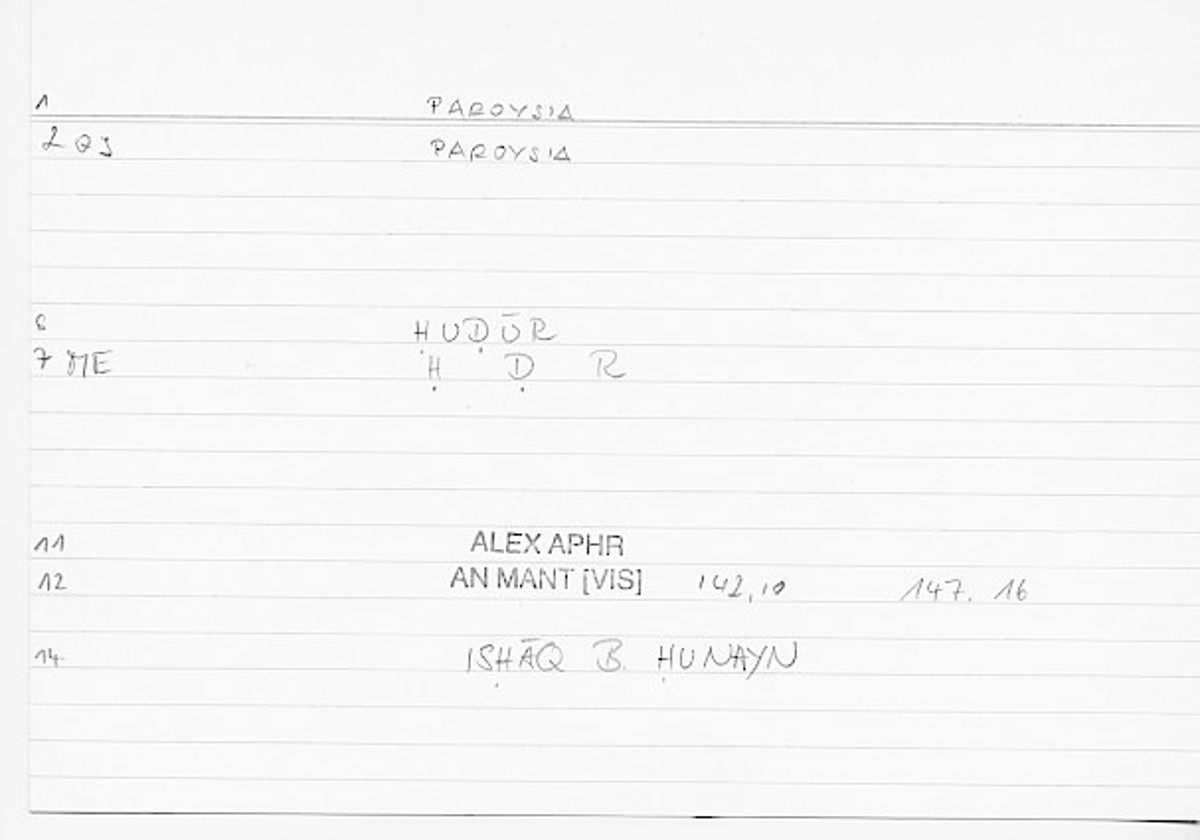 1 PAROYSIA
2 QJ PAROYSIA
6 ḤUḌŪR
7 ME Ḥ Ḍ R
11 ALEX APHR
12 AN MANT [VIS] 142,10 147. 16
14 ISḤĀQ B. ḤUNAYN